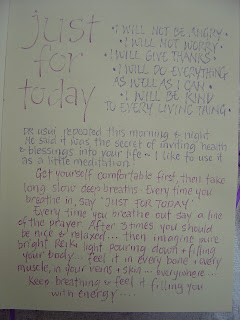 just
for
today
• I WILL NOT BE ANGRY •
• I WILL NOT WORRY •
• I WILL GIVE THANKS •
• I WILL DO EVERYTHING
AS WELL AS I CAN •
• I WILL BE KIND
TO EVERY LIVING THING •
DR USUI repeated this morning & night
He said it was the secret of inviting health
& blessings into your life ~ I like to use it
as a little meditation
Get yourself comfortable first, then take
long slow deep breaths. Every time you
breathe in, say 'JUST FOR TODAY'.
Every time you breathe out say a line
of the prayer. After 3 times you should
be nice & relaxed... then imagine pure
bright Reiki light pouring down & filling
your body.. feel it in every bone & every
muscle, in your veins & skin... everywhere...
Keep breathing & feel it filling you
with energy....